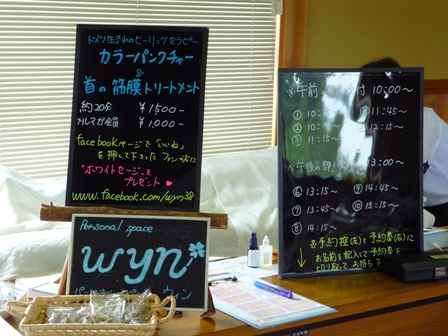 ドイツ生まれのヒーリングセラピー
カラーパンクチャー
&
首の筋膜トリートメント
約20分 ¥1,500-
¥1,000-
facebookページで「いいね」
を押して下さったファン様に
"ホワイトセージ"を
プレゼント♥
www.facebook.com/wyn38
Personal space
wyn
パーソナルスペース ウィン
※午前 付 10:00~
① 10:
② 10:
③ 11:15~
11:45~
⑤ 12:15~
午後の部 13:00~
⑥ 13:15~
⑦ 13:45~
⑧ 14:15~
⑨ 14:45~
⑩ 15:15~
予約控(左)と予約券(右)に
お名前を記入して予約券を
切り取ってお持ち下